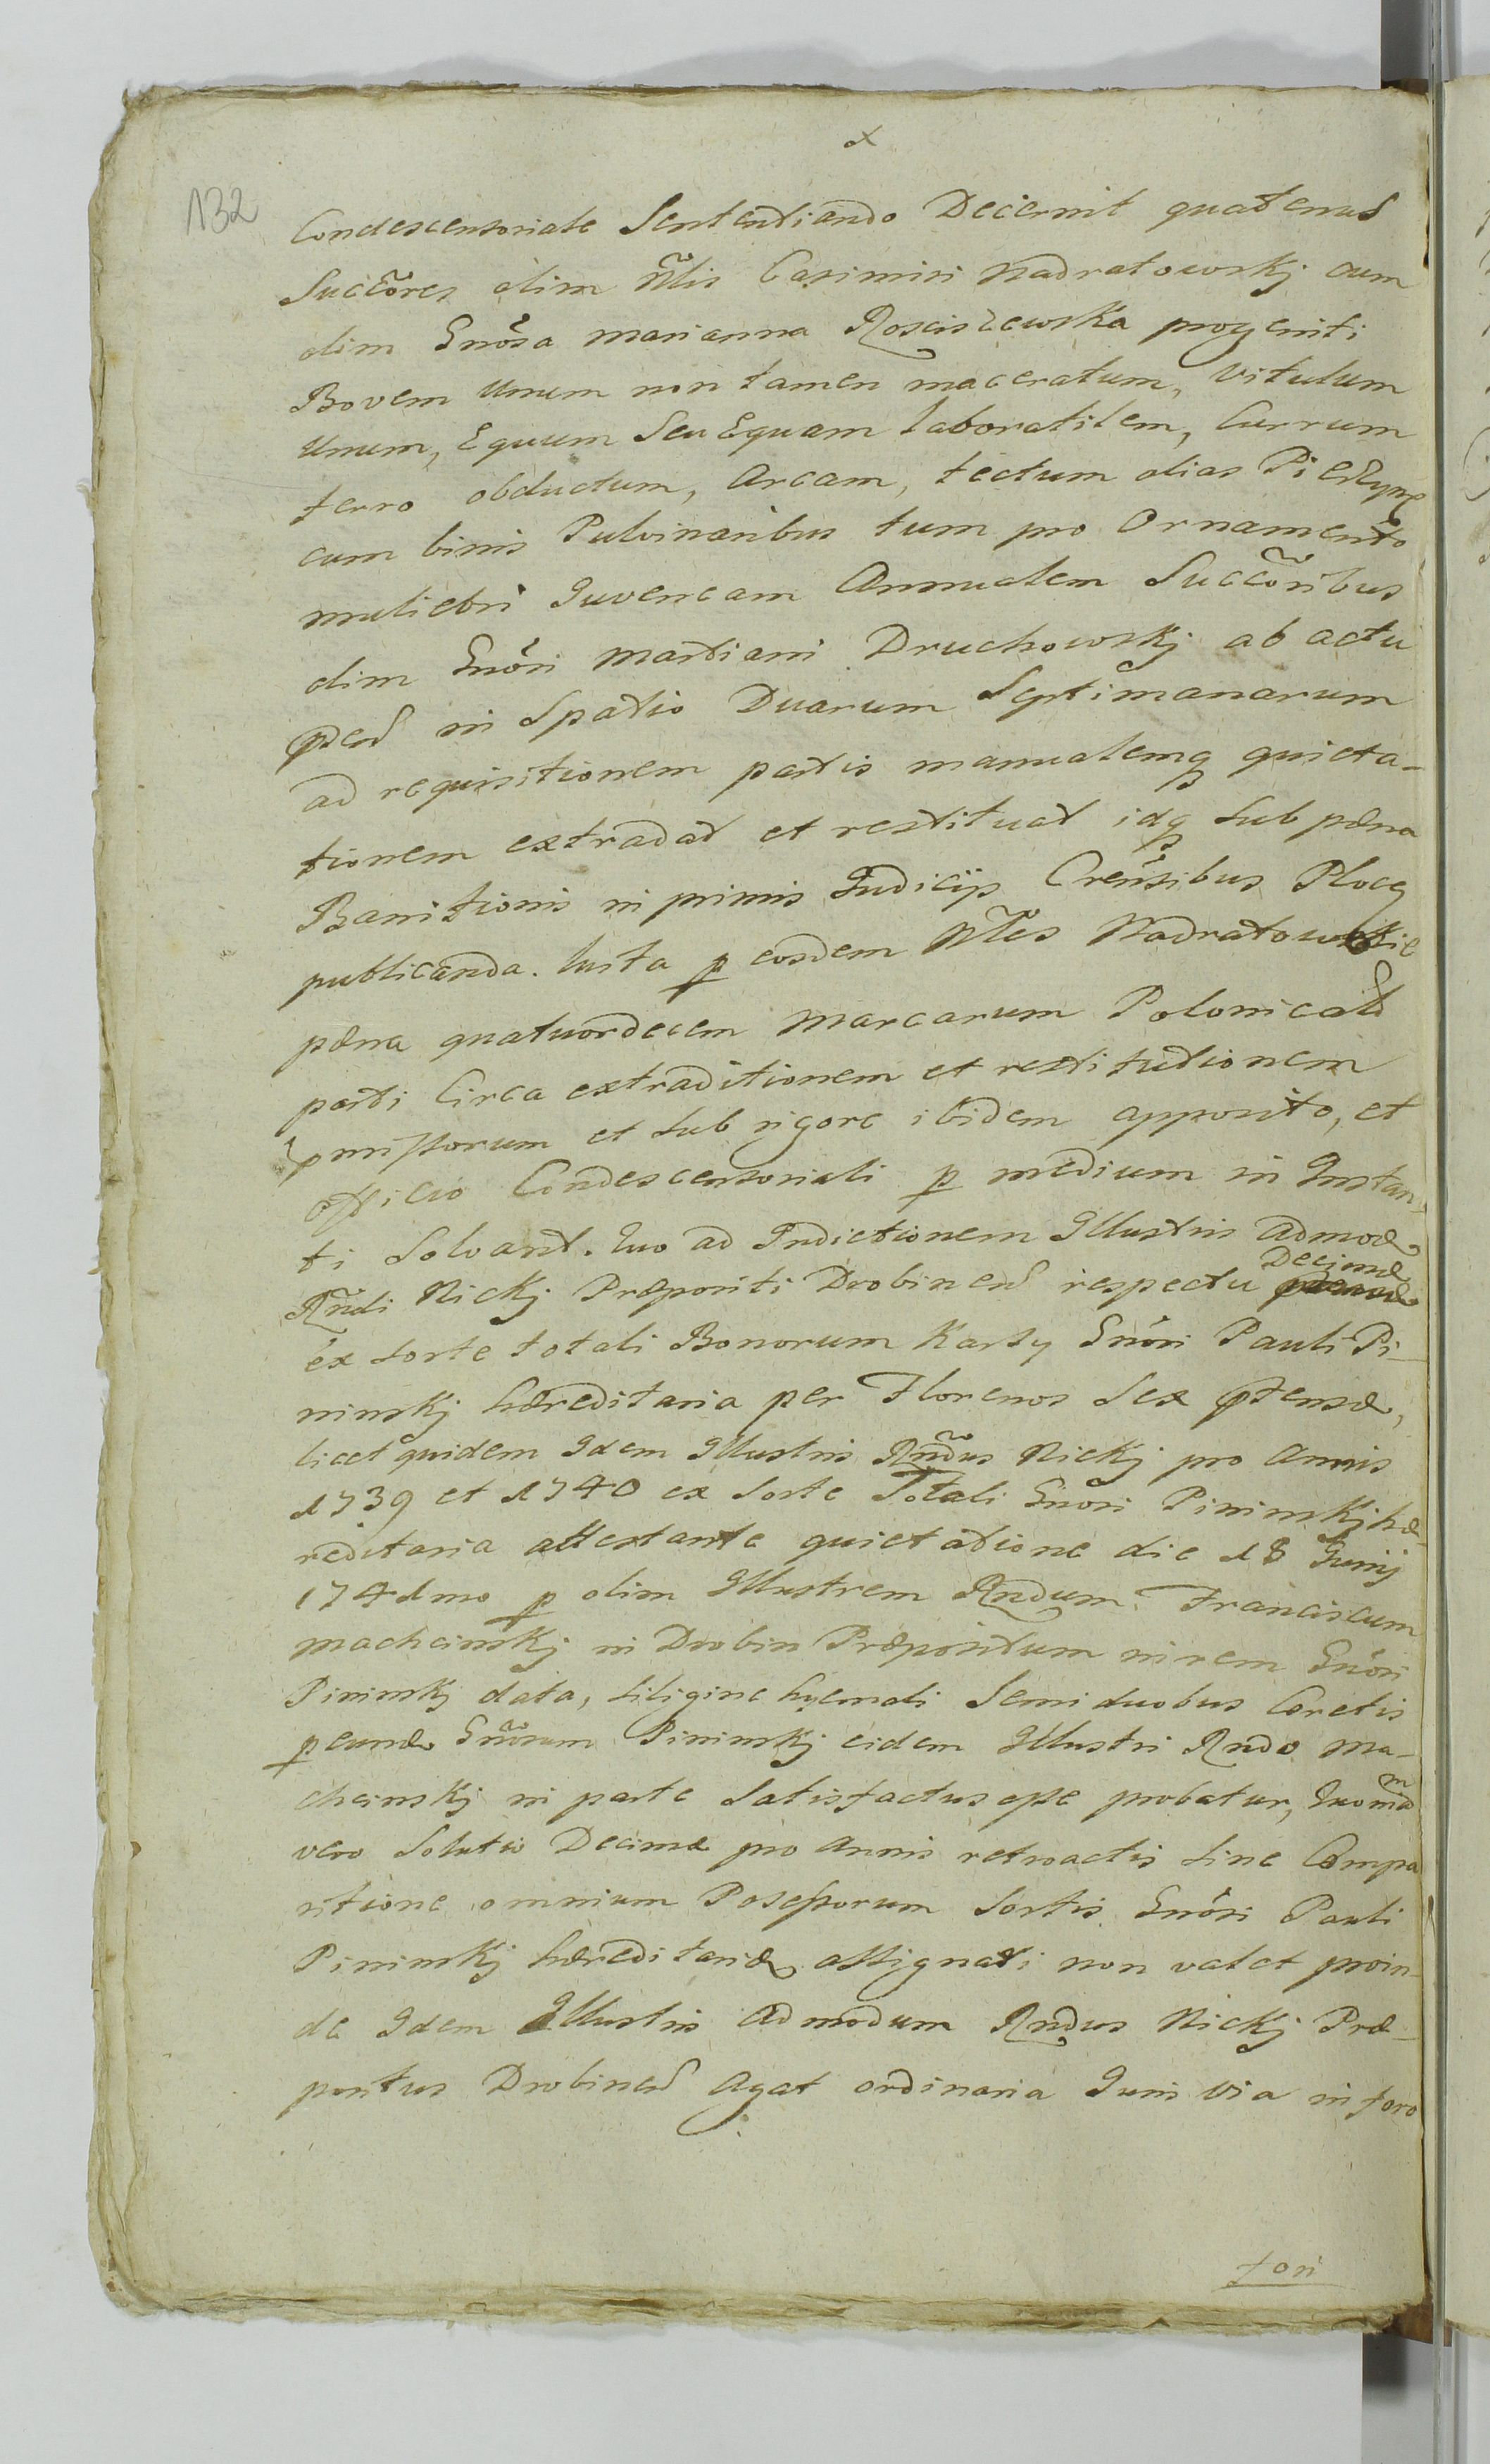 132
Condescensoriale Sententiando Decernit quatenus
Succôres olim Nlis Casimiri Nadratowskj cum
olim Gnôsa Marianna Rosciszewska progeniti
Bovem Unum non tamen maceratum, Vitulum
Unum, Equum Seu Equam laboratilem, Currum
ferro obductum, Arcam, tectum alias Pierzynę
cum binis Pulvinaribus tum pro Ornamento
muliebri Juvencam Annualem Succôribus
olim Gnôsi Martiani Druchowskj ab actu
pñtj in Spatio Duarum Septimanarum
ad requisitionem partis manualemq quieta-
tionem extradat et restituat idq sub pæna
Banitionis in primis Judicijs Crensibus Plocen
publicanda. Luita p eosdem Nles Nadratowskie
pæna quatuordecem Marcarum Polonicalium
parti Circa extraditionem et restitutionem
pmissorum et sub rigore ibidem apposito, et
officio Condescensoriali p medium in Instan-
ti Solvant. Quo ad Indictionem Illustris admod
Rndi Nickj Præpositi Drobinen respectu Decimæ
ex sorte totali Bonorum Karsy Gnôsi Pauli Pi-
ninskj hæreditaria per Florenos Sex ptensæ,
licet quidem Idem Illustris Rndus Nickj pro Annis
1739 et 1740 ex Sorte Totali Gnôsi Pininskj hæ-
reditaria attestante quietatione die 18 Junij
1741mo p olim Illustrem Rndum Franciscum
Machcinskj in Drobin Præpositum in rem Gnôsi
Pininskj data, siligine hyemali Semiduobus Coretis
p eund Gnôsum Pininskj eidem Illustri Rndo Ma-
chcinskj in parte Satisfactus esse probatur, Quoniam
vero Solutio Decimæ pro Annis retroactis sine Compa
ritione omnium Possessorum Sortis Gnôsi Pauli
Pininskj hæreditariæ assignari non valet proin-
de Idem Illustris Admodum Rndus Nickj Præ-
positus Drobinen Agat ordinaria Juris via in foro
fori